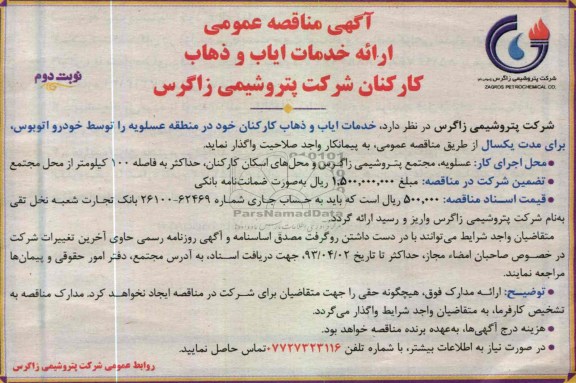 آگهی مناقصه عمومی
ارائه خدمات ایاب و ذهاب
کارکنان شرکت پتروشیمی زاگرس
نوبت دوم
شرکت پتروشیمی زاگرس
ZAGROS PETROCHEMICAL CO.
شرکت پتروشیمی زاگرس در نظر دارد، خدمات ایاب و ذهاب کارکنان خود در منطقه عسلویه را توسط خودرو اتوبوس،
برای مدت یکسال از طریق مناقصه عمومی، به پیمانکار واجد صلاحیت واگذار نماید.
•محل اجرای کار: عسلویه، مجتمع پتروشیمی زاگرس و محل‌های اسکان کارکنان، حداکثر به فاصله ۱۰۰ کیلومتر از محل مجتمع
• تضمین شرکت در مناقصه: مبلغ ۱,۵۰۰,۰۰۰,۰۰۰ ریال به‌صورت ضمانت‌نامه بانکی
• قیمت اسناد مناقصه: ۵۰۰,۰۰۰ ریال است که باید به حساب جاری شماره ۶۲۴۶۹-۲۶۱۰۰ بانک تجارت شعبه نخل تقی
به‌نام شرکت پتروشیمی زاگرس واریز و رسید ارائه گردد.
ParsNamadData
متقاضیان واجد شرایط می‌توانند با در دست داشتن روگرفت مصدق اساسنامه و آگهی روزنامه رسمی حاوی آخرین تغییرات شرکت
در خصوص صاحبان امضاء مجاز، حداکثر تا تاریخ ۹۳/۰۴/۰۲، جهت دریافت اسناد، به آدرس مجتمع، دفتر امور حقوقی و پیمان‌ها
مراجعه نمایند.
• توضیح: ارائه مدارک فوق، هیچگونه حقی را جهت متقاضیان برای شرکت در مناقصه ایجاد نخواهد کرد. مدارک مناقصه به
تشخیص کارفرما، به متقاضیان واجد شرایط واگذار می‌گردد.
• هزینه درج آگهی‌ها، به‌عهده برنده مناقصه خواهد بود.
• در صورت نیاز به اطلاعات بیشتر، با شماره تلفن ۰۷۷۲۷۳۲۳۱۱۶تماس حاصل نمایید.
روابط عمومی شرکت پتروشیمی زاگرس